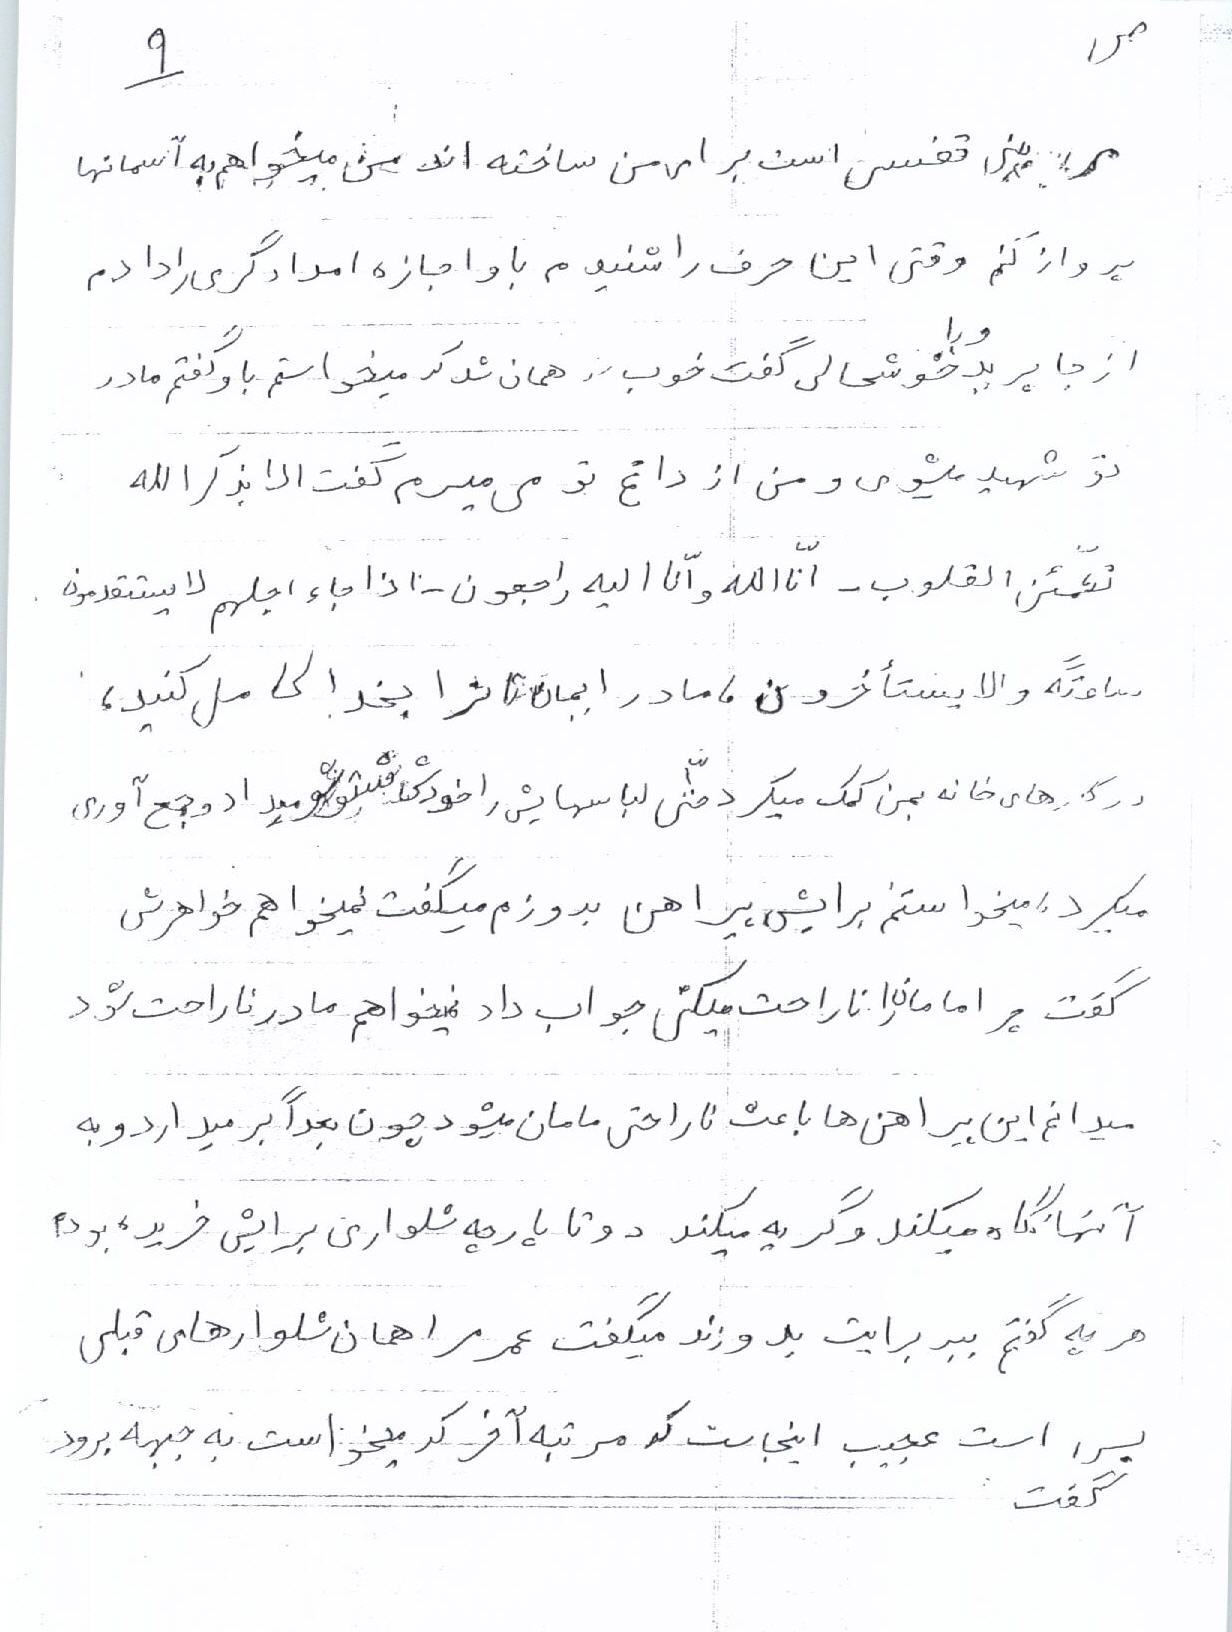 ۹
قفسی است برای من ساخته اند من میخواهم به آسمانها
پرواز کنم وقتی این حرف را شنیدم باو اجازه امدادگری را دادم
از جا پرید و با خوشحالی گفت خوب همان شد که میخواستم باو گفتم مادر
تو شهید میشوی و من از داغ تو می میرم گفت الا بذکر الله
تطمئن القلوب - انّا لله و انّا الیه راجعون - اذا جاء اجلهم لا یستقدمون
ساعتَه والا یستأخرون، مادر ایمانتانرا بخدا کامل کنید،
در کارهای خانه بمن کمک میکرد حتّی لباسهایش را خودش شستشو میداد و جمع آوری
میکرد، میخواستم برایش پیراهن بدوزم میگفت نمیخواهم خواهرش
گفت چرا مامانرا ناراحت میکنی جواب داد نمیخواهم مادر ناراحت شود
میدانم این پیراهن ها باعث ناراحتی مامان میشود چون بعداً برمیدارد و به
آنها نگاه میکند و گریه میکند دو تا پارچه شلواری برایش خریده بودم
هر چه گفتم ببر برایت بدوزند میگفت عمر مرا همان شلوارهای قبلی
بس است عجیب اینجاست که مرتبه آخر که میخواست به جبهه برود
گفت